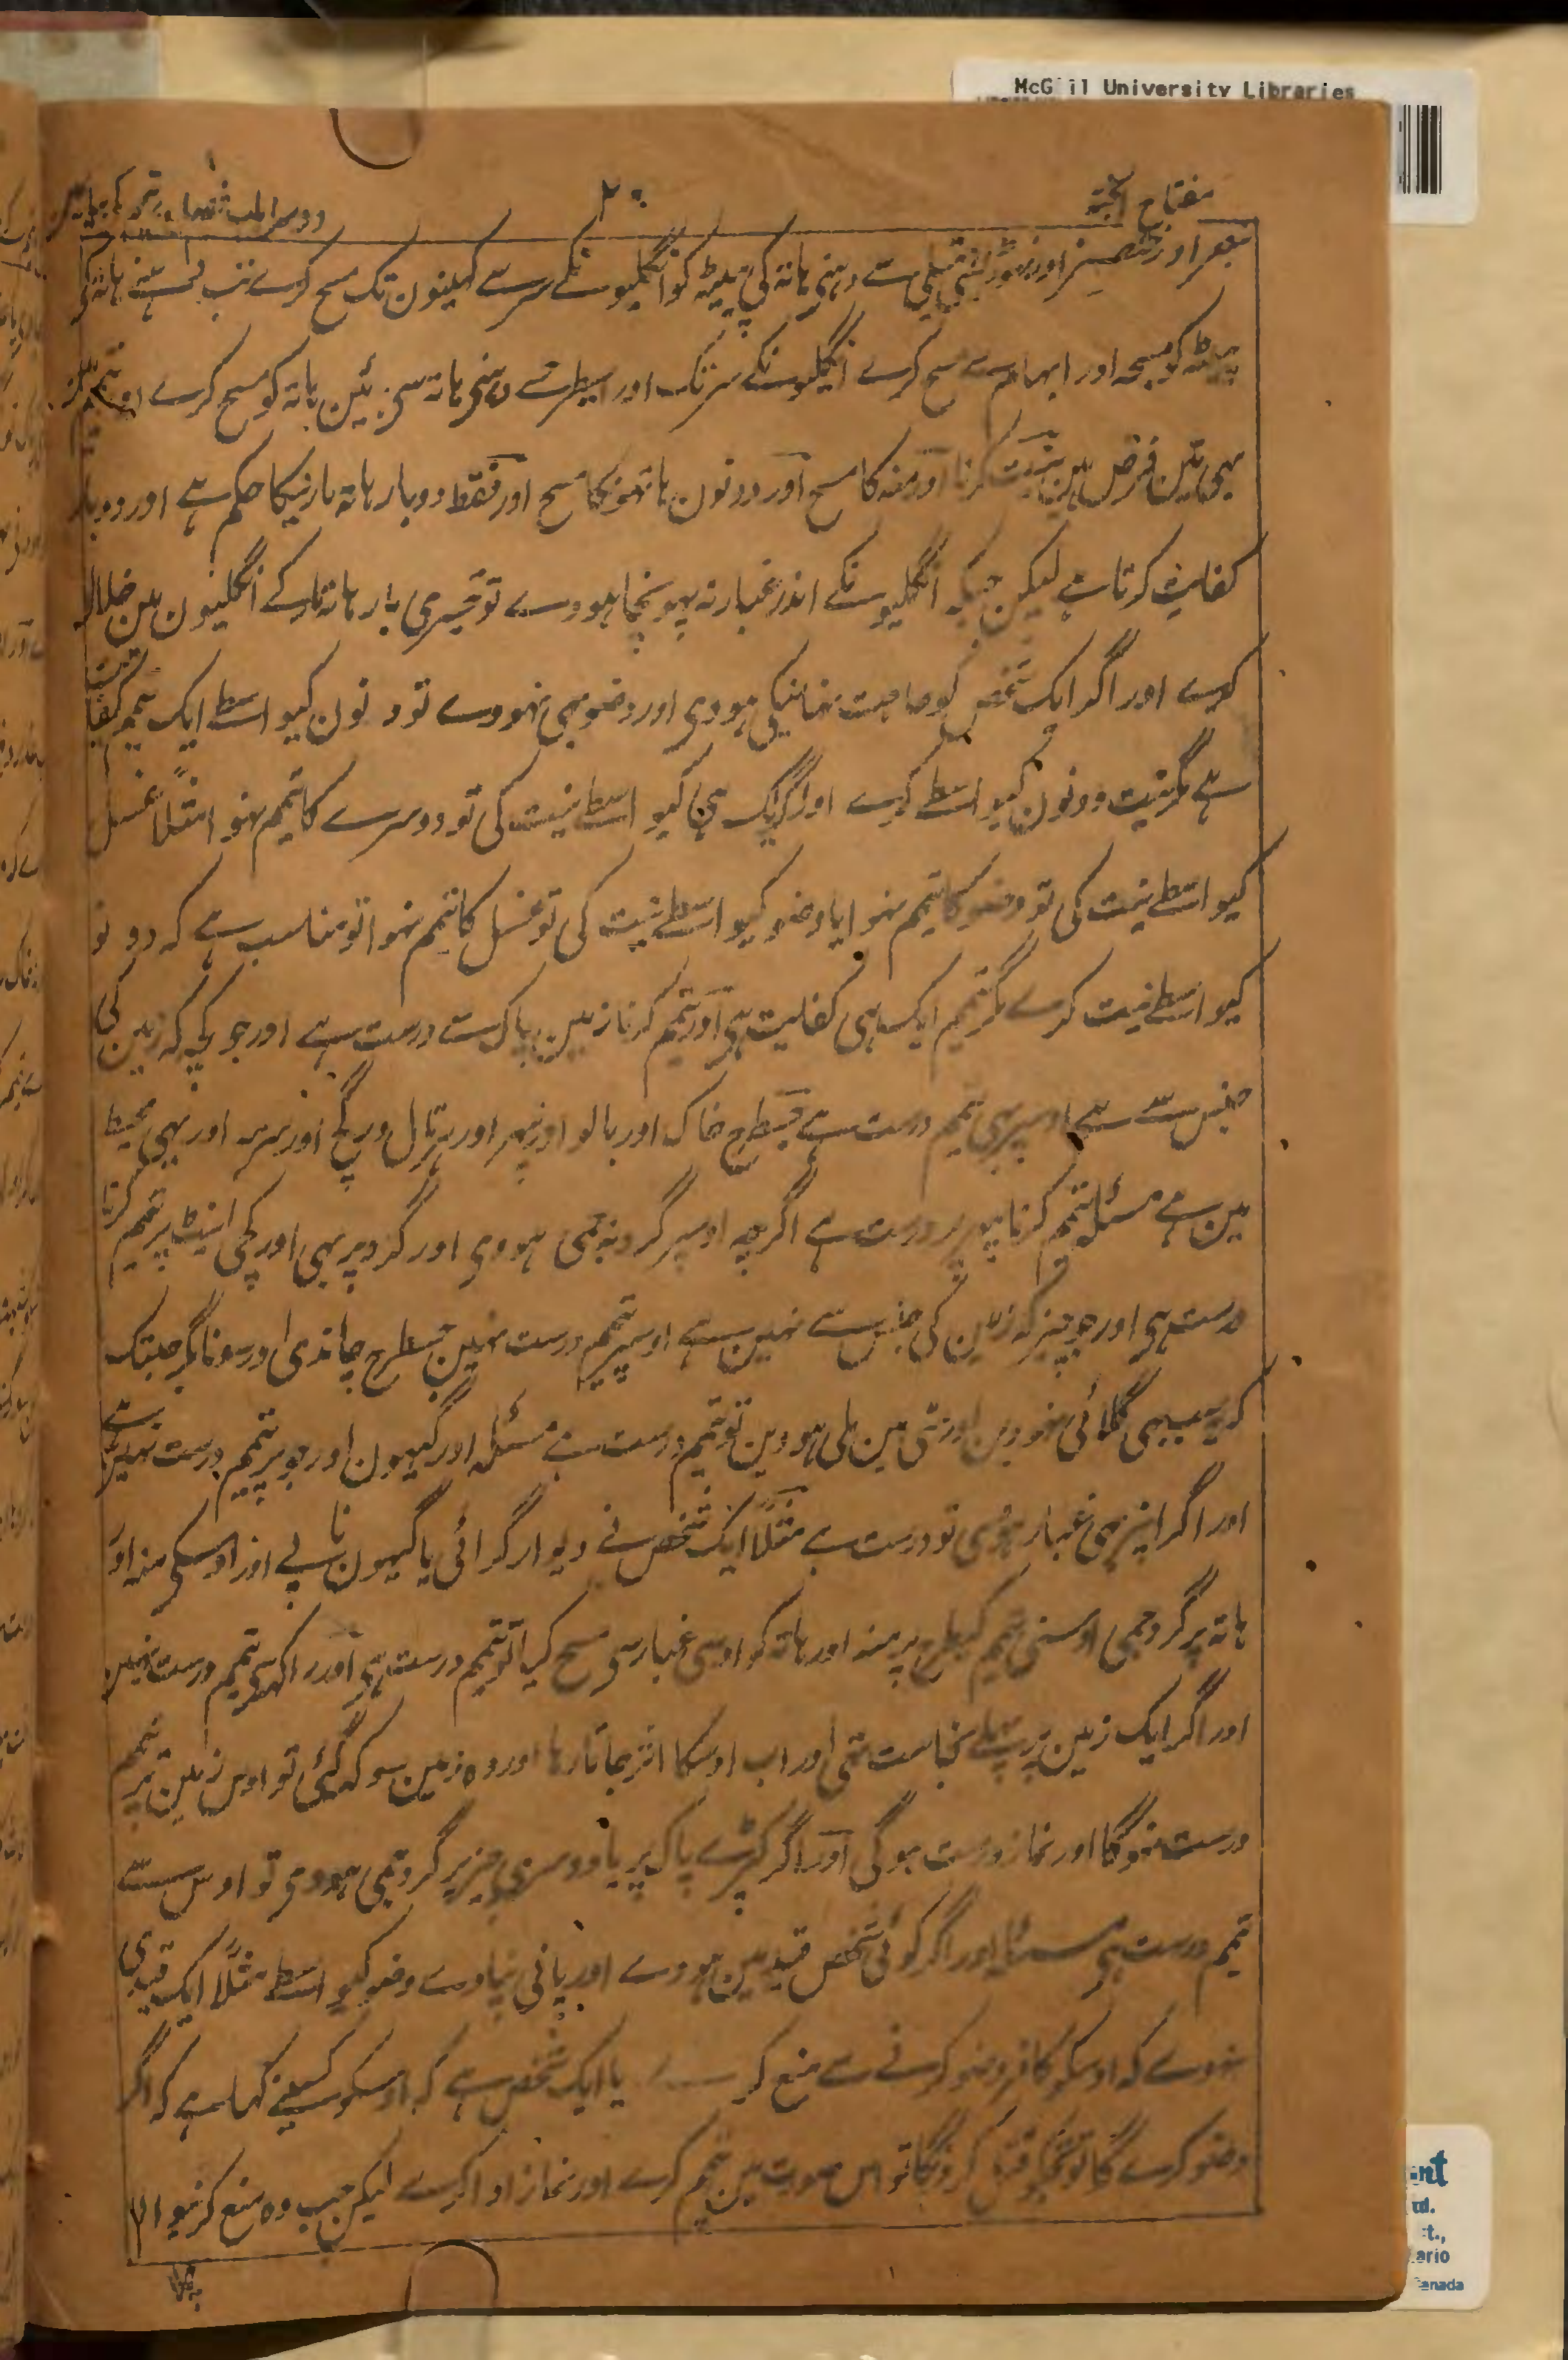 McGill University Libraries
مفتاح الجنۃ
۲۰
دوسرا باب
بنصر اور خنصر اور تہوڑی ہتیلی سے دہنی ہاتہ کی پیٹہ کو انگلیونکے سر سے کہنیون تک مسح کرے تب ہاتہ کی
پیٹہ کو مسبحہ اور ابہام سے مسح کرے انگلیونکے سر تک اور اسیطرحسے دہنی ہاتہ سی بائین ہاتہ کو مسح کرے اور تیمم مین
بہی تین فرض ہین نیت کرنا اور منہ کا مسح اور دونون ہاتہونکا مسح اور فقط دو بار ہاتہ مارنیکا حکم ہے اور دو بار
کفایت کرتا ہے لیکن جبکہ انگلیونکے اندر غبار نہ پہونچا ہووے تو تیسری بار ہاتہ مار کے انگلیون مین خلال
کرے اور اگر ایک شخص کو حاجت نہانیکی ہووی اور وضو بہی نہووے تو دونون کیواسطے ایک تیمم کفایت
ہے مگر نیت دونون کیواسطے کرے اور اگر ایک ہی کیواسطے نیت کی تو دوسرے کا تیمم نہوا مثلاً غسل
کیواسطے نیت کی تو وضو کا تیمم نہوا یا وضو کیواسطے نیت کی تو غسل کا تیمم نہوا تو مناسب ہے کہ دونو
کیواسطے نیت کرے مگر تیمم ایک ہی کفایت ہی اور تیمم کرنا زمین پاک سے درست ہے اور جو کچہ کہ زمین کی
جنس سے ہے اوسپر بہی تیمم درست ہے جسطرح خاک اور بالو اور پتہر اور ہرتال و گچ اور سرمہ اور یہی محیط
مین ہے مسئلہ تیمم کرنا پتہر پر درست ہے اگرچہ اوسپر گرد نہ جمی ہووی اور گرد پر بہی اور کچی اینٹ پر تیمم کرنا
درست ہی اور جو چیز کہ زمین کی جنس سے نہین ہے اوسپر تیمم درست نہین جسطرح چاندی اور سونا مگر جبتک
کہ یہ سب بہی گلائی نہووین اور مٹی مین ملی ہووین تو تیمم درست ہے مسئلہ اور گیہون اور جو پر تیمم درست نہین ہے
اور اگر اینپر بہی غبار ہووی تو درست ہے مثلاً ایک شخص نے دیوار گرائی یا گیہون ناپے اور اوسکی منہ اور
ہاتہ پر گرد جمی اوسنی تیمم کیطرح پر منہ اور ہاتہ کو اوسی غبار سی مسح کیا تو تیمم درست ہی اور راکہسی تیمم درست نہین
اور اگر ایک زمین پر پہلے نجاست تہی اور اب اوسکا اثر جاتا رہا اور وہ زمین سوکہہ گئی تو اوس زمین پر تیمم
درست نہوگا اور نماز درست ہوگی اور اگر کپڑے پاک پر یا دوسری چیز پر گرد جمی ہووی تو اوس سے
تیمم درست ہی مسئلہ اور اگر کوئی شخص قید مین ہووے اور پانی نپاوے وضو کیواسطے مثلاً ایک قیدی
ہووے کہ اوسکو کافر وضو کرنے سے منع کرے یا ایک شخص ہے کہ اوسکو کسینے کہا ہے کہ اگر
وضو کرے گا تو تجکو قتل کرونگا تو اس صورت مین تیمم کرے اور نماز ادا کرے لیکن جب وہ منع کرنیوالا
nt
td.
t.,
ario
Canada